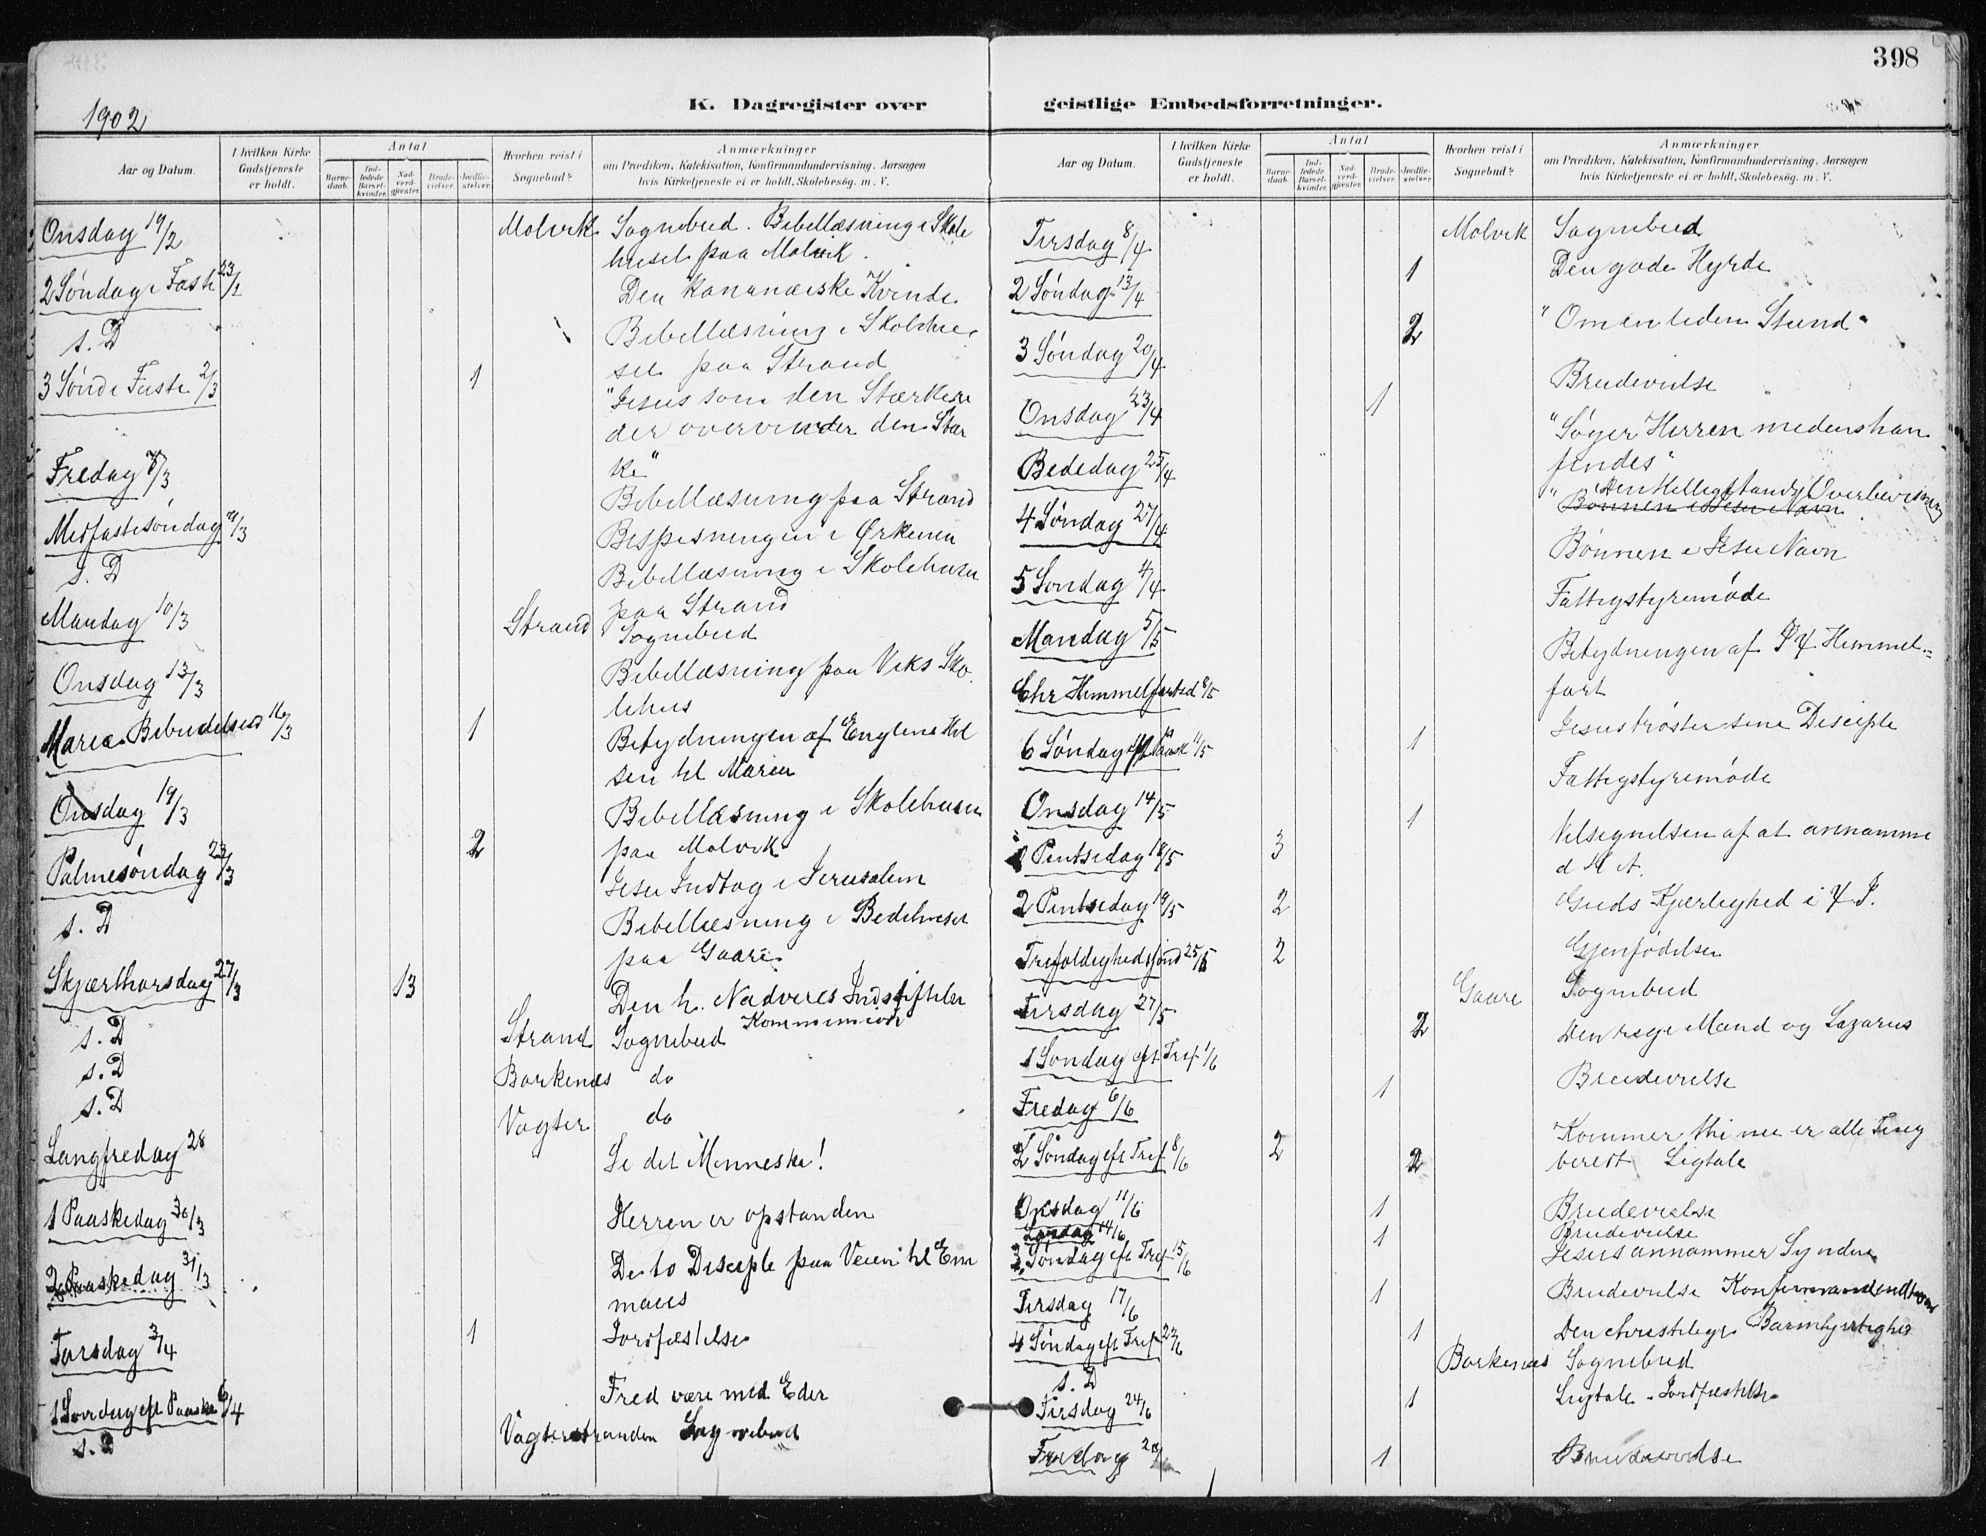 398
1902
K. Dagregister over
geistlige Embedsforretninger.
Aar og Datum.
I hvilken Kirke Gudstjeneste er holdt.
Antal
Barnedaab.
Indledede Barselkvinder.
Nadverdgjester.
Brudevielser.
Jordfæstelser.
Hvorhen reist i Sognebud?
Anmærkninger
om Prædiken, Katekisation, Konfirmandundervisning, Aarsagen
hvis Kirketjeneste ei er holdt, Skolebesøg. m. V.
Onsdag 19/2 Molvik Sognebud. Bibellæsning i Skole
huset paa Molvik.
2 Søndag i Faste 23/2 Den kananæiske Kvinde
s. D Bibellæsning i Skolehu
set paa Strand
3 Sønd i Faste 2/3 1 "Jesus som den Stærkere
der overvinder den Stær
ke"
Fredag 7/3 Bibellæsning paa Strand
Midfastesøndag 9/3 Bespisningen i Ørkenen
s. D Bibellæsning i Skolehuset
paa Strand
Mandag 10/3 Strand Sognebud
Onsdag 13/3 Bibellæsning paa Viks Sko
lehus
Maria Bebudelsesd 16/3 1 Betydningen af Englens Hil
sen til Maria
Onsdag 19/3 Bibellæsning i Skolehuset
paa Molvik
Palmesøndag 23/3 2 Jesu Indtog i Jerusalem
s. D Bibellæsning i Bedehuset
paa Gaare
Skjærthorsdag 27/3 13 Den h. Nadveres Indstiftelse
s. D Strand Sognebud Kommunion
s. D Barkenæs do
s. D Vagter do
Langfredag 28 Se det Menneske!
1 Paaskedag 30/3 Herren er opstanden
2 Paaskedag 31/3 De to Disciple paa Veien til Em
maus
Torsdag 3/4 1 Jordfæstelse
1 Søndag eft Paaske 6/4 Fred være med Eder
s. D Vagterstranden Sognebud
Aar og Datum.
I hvilken Kirke Gudstjeneste er holdt.
Antal
Barnedaab.
Indledede Barselkvinder.
Nadverdgjester.
Brudevielser.
Jordfæstelser.
Hvorhen reist i Sognebud?
Anmærkninger
om Prædiken, Katekisation, Konfirmandundervisning, Aarsagen
hvis Kirketjeneste ei er holdt, Skolebesøg. m. V.
Tirsdag 8/4 Molvik Sognebud
2 Søndag 13/4 1 Den gode Hyrde
3 Søndag 20/4 2 "Om en liden Stund"
Onsdag 23/4 1 Brudevielse
Bededag 25/4 "Søger Herren medens han
findes"
4 Søndag 27/4 "Den Helligaands Overbevisning
Bønnen i Jesu Navn
5 Søndag 4/4 Bønnen i Jesu Navn
Mandag 5/5 Fattigstyremøde
Chr Himmelfartsd 8/5 Betydningen af Himmel=
fart
6 Søndag eft Paask 11/5 1 Jesus trøster sine Disciple
Onsdag 14/5 Fattigstyremøde
1 Pintsedag 18/5 3 1 Velsignelsen af at annamme
d H A.
2 Pintsedag 19/5 2 Guds Kjærlighed i
Trefoldighedssønd 25/5 2 Gjenfødelsen
Tirsdag 27/5 Gaare Sognebud
1 Søndag eft Tref 1/6 2 Den rige Mand og Lazarus
Fredag 6/6 1 Brudevielse
2 Søndag eft Tref 8/6 2 2 Kommer thi nu er alle Ting
beredt Ligtale
Onsdag 11/6 1 Brudevielse
Lørdag 14/6 1 Brudevielse
3 Søndag eft Tref 15/6 Jesus annammer Syndere
Tirsdag 17/6 1 Brudevielse
4 Søndag eft Tref 22/6 1 Den christelige Barmhjertighed
s. D Barkenæs Sognebud
Tirsdag 24/6 1 Ligtale. Jordfæstelse
Fredag 1 Brudevielse